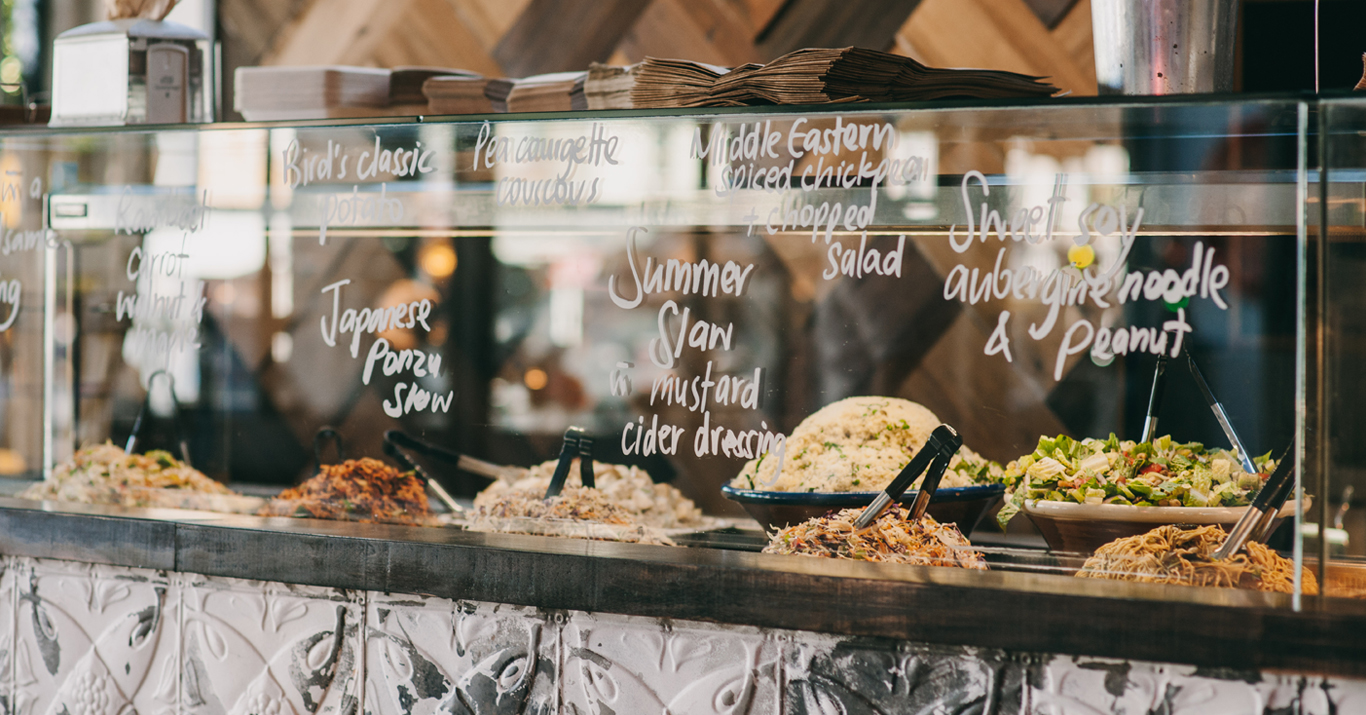 m a
same
ng
carrot
walnut &
Bird's classic
potato
Japanese
Ponzu
Slaw
Pea courgette
couscous
Summer
Slaw
in mustard
cider dressing
Middle Eastern
spiced chickpea
+ chopped
Salad
Sweet soy
aubergine noodle
& peanut